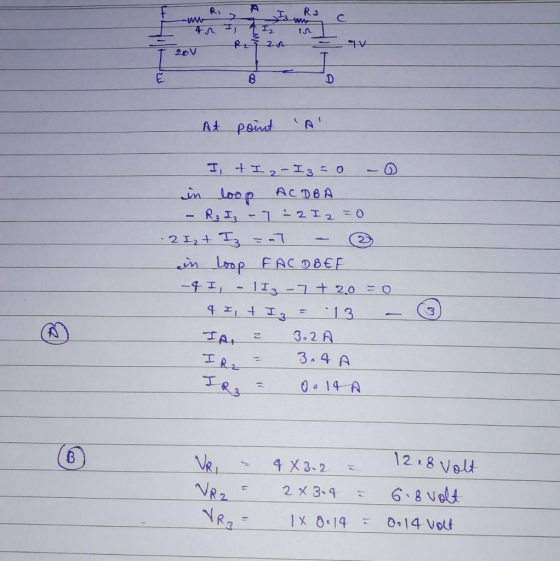 F R₁ A I₃ R₃ C
4Ω I₁ I₂ 1Ω
R₂ 2Ω 7V
20V
E B D
At point 'A'
I₁ + I₂ - I₃ = 0 — ①
in loop ACDBA
- R₃I₃ - 7 - 2I₂ = 0
2I₂ + I₃ = -7 — ②
in loop FACDBEF
-4I₁ - 1I₃ - 7 + 20 = 0
4I₁ + I₃ = 13 — ③
Ⓐ I_R₁ = 3.2A
I_R₂ = 3.4A
I_R₃ = 0.14A
Ⓑ V_R₁ = 4×3.2 = 12.8 Volt
V_R₂ = 2×3.4 = 6.8 Volt
V_R₃ = 1×0.14 = 0.14 Volt